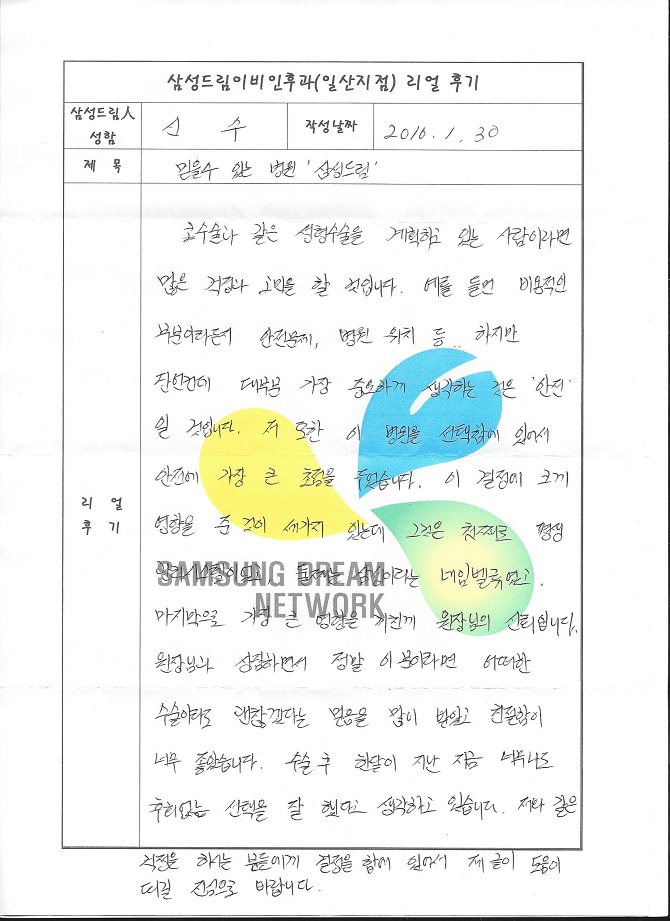 삼성드림이비인후과(일산지점) 리얼 후기
삼성드림人 성함
신 수
작성날짜
2016. 1. 30
제 목
믿을수 있는 병원 '삼성드림'
리 얼 후 기
코수술나 같은 성형수술을 계획하고 있는 사람이라면
많은 걱정과 고민을 할 것입니다. 예를 들면 비용적인
부분이라든지 안전문제, 병원 위치 등.. 하지만
단언컨데 대부분 가장 중요하게 생각하는 것은 '안전'
일 것입니다. 저 또한 이 병원을 선택함에 있어서
안전에 가장 큰 초점을 두었습니다. 이 결정에 크게
영향을 준 것이 세가지 있는데 그것은 첫째로
둘째는 삼성이라는 네임벨류였고.
SAMSUNG DREAM
NETWORK
마지막으로 가장 큰 영향을 끼친게 원장님의 신뢰입니다.
원장님과 상담하면서 정말 이분이라면 어떠한
수술이라도 괜찮겠다는 믿음을 많이 받았고 친절함이
너무 좋았습니다. 수술 후 한달이 지난 지금 너무나도
후회없는 선택을 잘 했다고 생각하고 있습니다. 저와 같은
걱정을 하시는 분들에게 결정을 함에 있어서 제 글이 도움이
되길 진심으로 바랍니다.